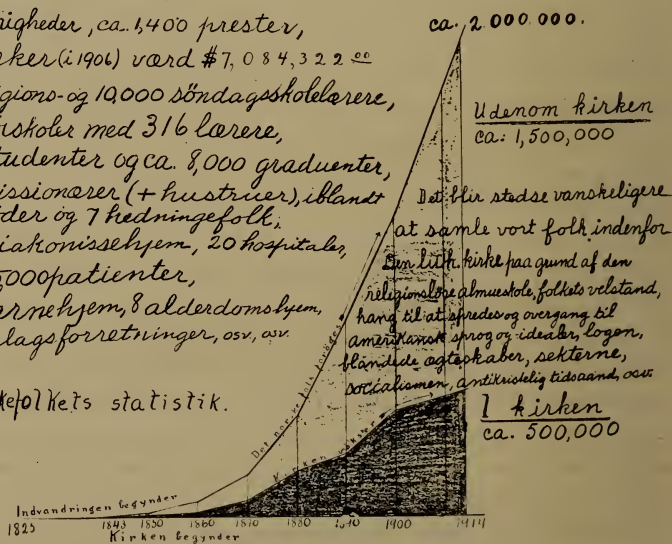 igheder, ca. 1,400 prester,
rker (i 1906) værd $7,084,322 00
gions- og 10,000 söndagsskolelærere,
skoler med 316 lærere,
tudenter og ca. 8,000 graduenter,
issionærer (+ hustruer), iblandt
der og 7 hedningefolk,
iakonissehjem, 20 hospitaler,
5,000 patienter,
ernehjem, 8 alderdomshjem,
lagsforretninger, osv, osv.
kefolkets statistik.
ca. 2.000.000.
Udenom kirken
ca. 1,500,000
Det blir stedse vanskeligere
at samle vort folk indenfor
Den luth. kirke paa grund af den
religionslöse almueskole, folkets velstand,
hang til at spredes og overgang til
amerikansk sprog og idealer, logen,
blandede ægteskaber, sekterne,
socialismen, antikristelig tidsaand, osv.
I kirken
ca. 500,000
Det norske folk forøges
Kirken vokster
Indvandringen begynder
1825 1843 1850 1860 1870 1880 1890 1900 1914
Kirken begynder